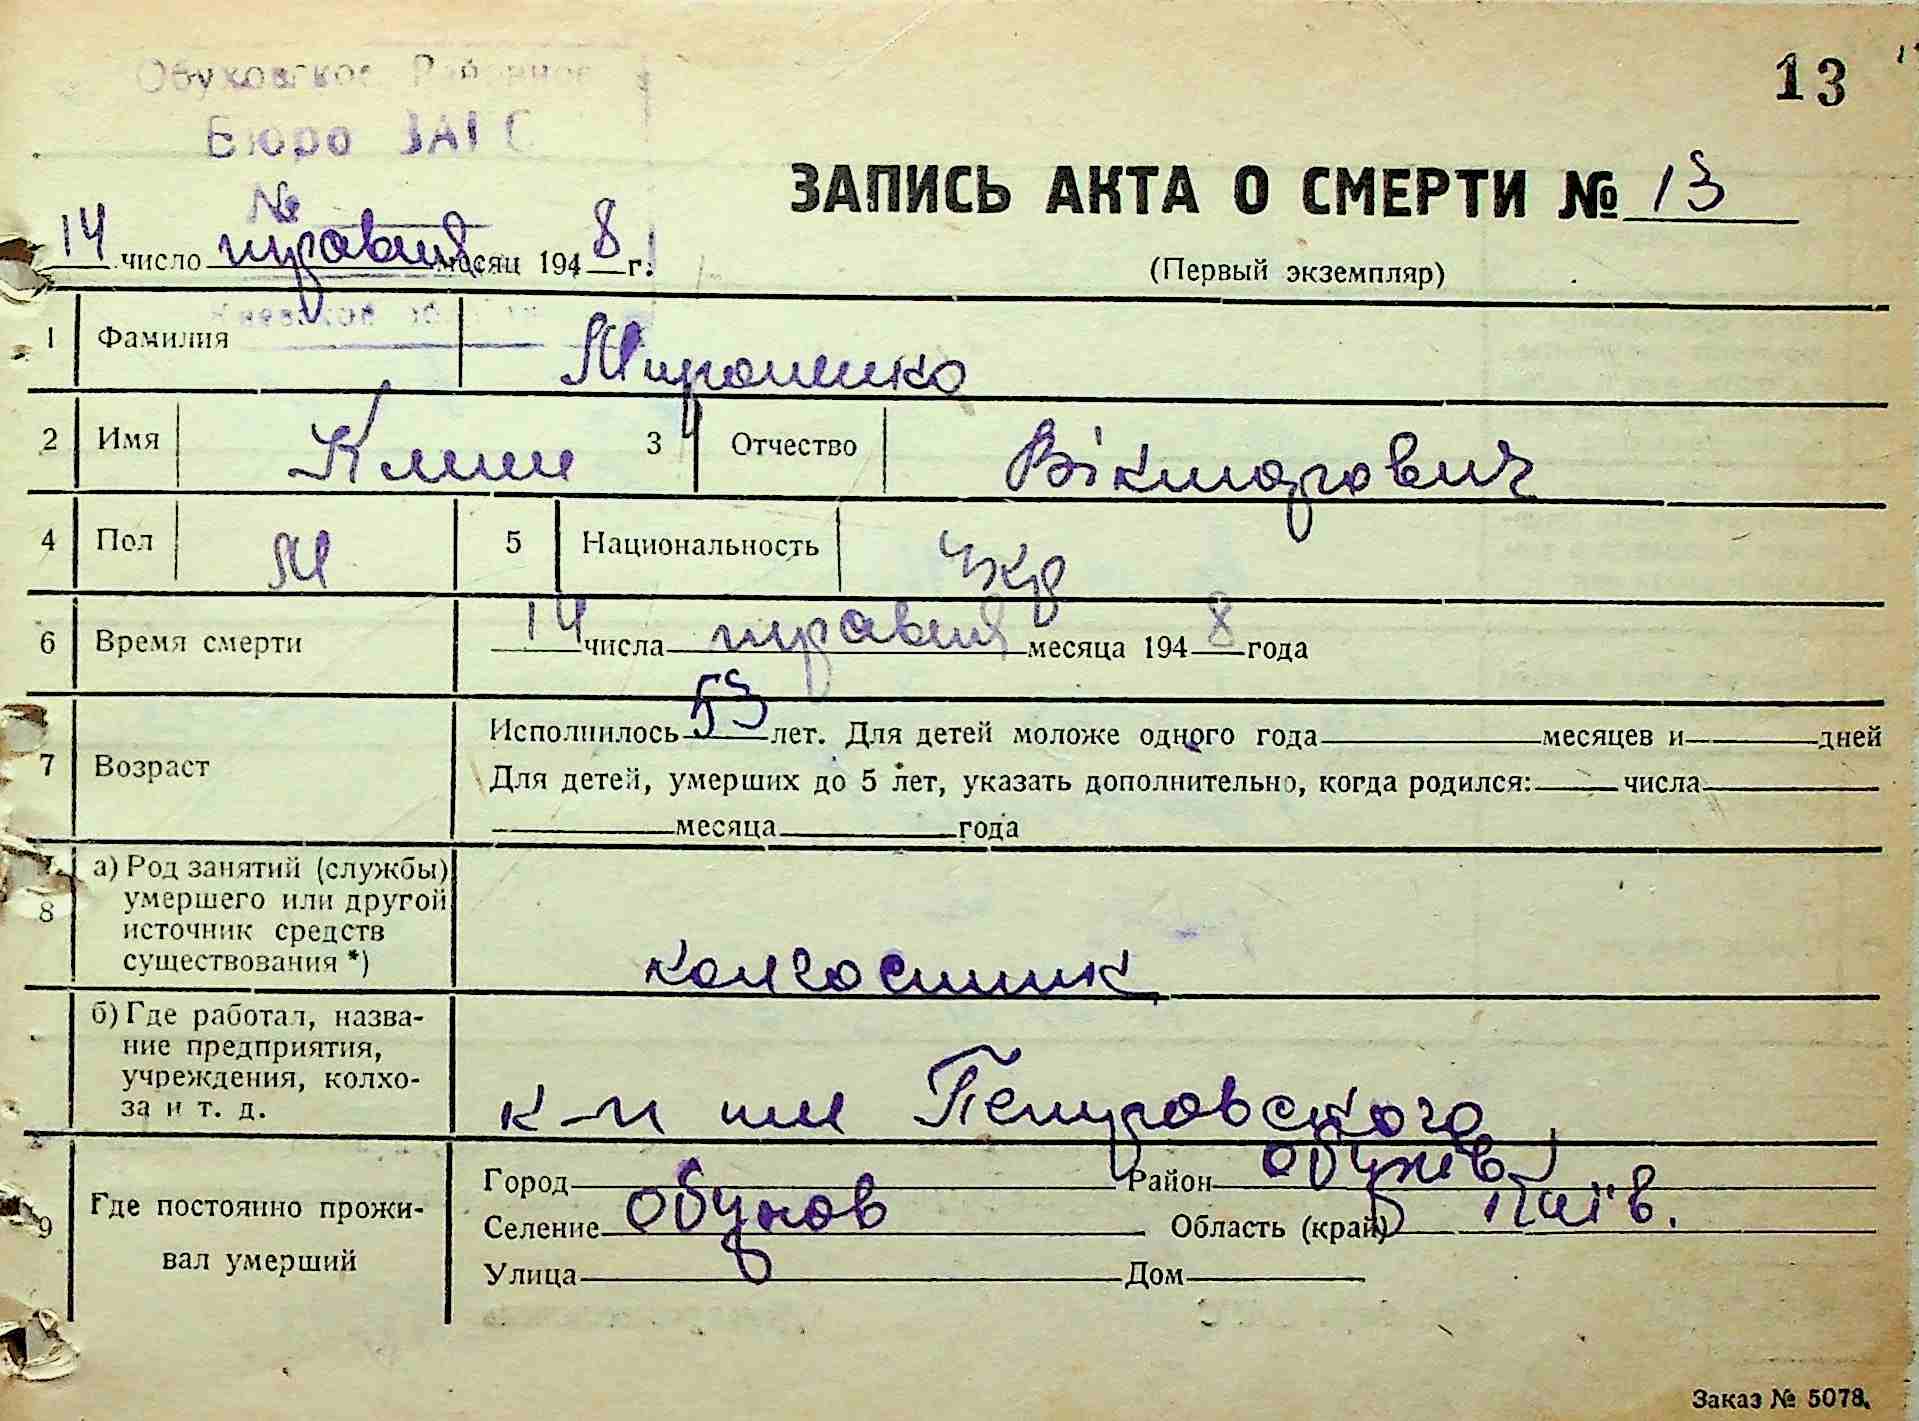 13
Обуховское Районное
Бюро ЗАГС
№
ЗАПИСЬ АКТА О СМЕРТИ № 13
14 число травня месяц 1948 г.
(Первый экземпляр)
Киевской
1 Фамилия Мироненко
2 Имя Клим 3 Отчество Вікторович
4 Пол М 5 Национальность Укр
6 Время смерти 14 числа травня месяца 1948 года
7 Возраст Исполнилось 53 лет. Для детей моложе одного года месяцев и дней
Для детей, умерших до 5 лет, указать дополнительно, когда родился: числа
месяца года
8 а) Род занятий (службы)
умершего или другой
источник средств
существования *) колгоспник
б) Где работал, назва-
ние предприятия,
учреждения, колхо-
за и т. д. к-п им Петровского
9 Где постоянно прожи-
вал умерший
Город Район Обухів
Селение Обухов Область (край) Київ.
Улица Дом
Заказ № 5078.